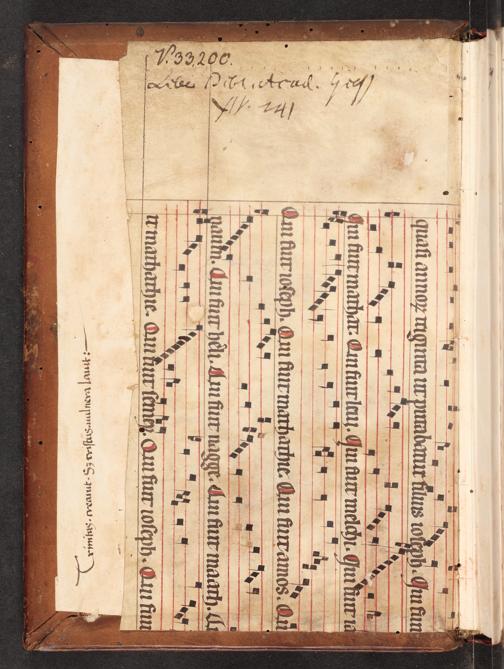 V.33200.
Liber Bibl. Acad.
241
quasi annoꝝ triginta ut putabatur filius ioseph. Qui fuit
Qui fuit mathat. Qui fuit leui. Qui fuit melchi. Qui fuit
Qui fuit ioseph. Qui fuit mathathie. Qui fuit amos. Qui
naum. Qui fuit hesli. Qui fuit nagge. Qui fuit maath.
it mathathie. Qui fuit semey. Qui fuit ioseph. Qui fuit
creauit. uulnera lauit: